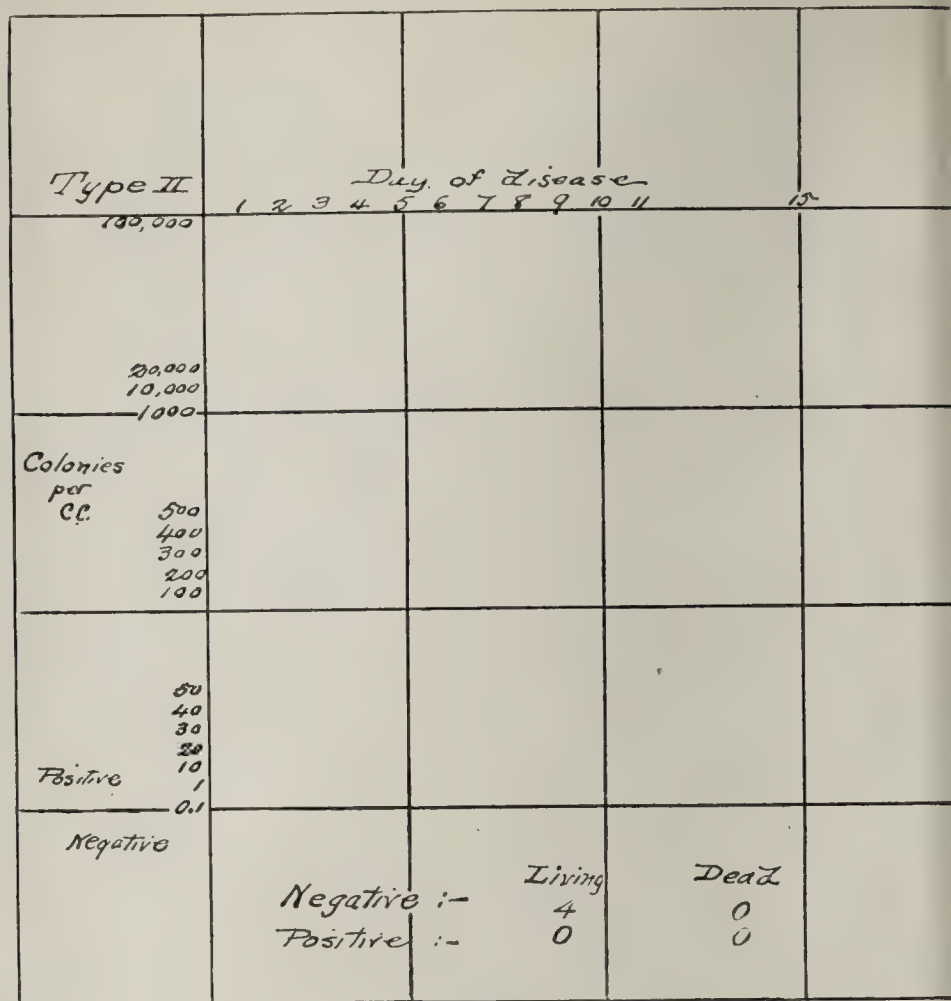 Type II
Day of disease
1 2 3 4 5 6 7 8 9 10 11 15
100,000
20,000
10,000
1000
Colonies
per
CC.
500
400
300
200
100
50
40
30
20
10
Positive 1
0.1
Negative
Living Dead
Negative :- 4 0
Positive :- 0 0